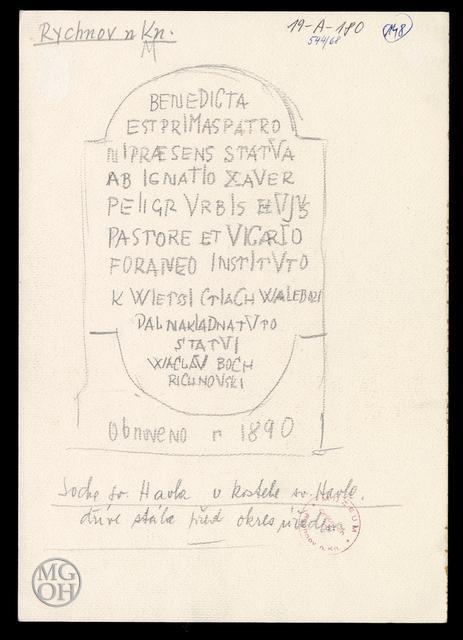 Rychnov n Kn.
19-A-180
544/68
148
BENEDICTA
EST PRIMAS PATRO
NI PRÆSENS STATVA
AB IGNATIO XAVER
PELIGR VRBIS HVJVS
PASTORE ET VICARIO
FORANEO INSTITVTO
K WIETSI CTIACH WALEBNI
DAL NAKLAD NA TVTO
STATVI
WACLAV BOCH
RICHNOVSKI
Obnoveno r 1890
Socha sv. Havla v kostele sv. Havla.
dříve stála před okres úřadem
MUZEUM
RYCHNOV n. Kn.
MG
OH